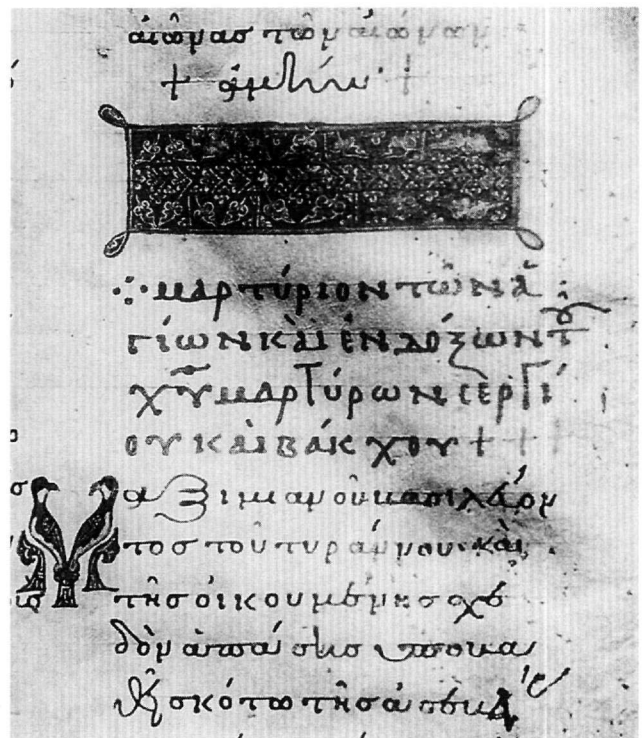 αἰῶνας τῶν αἰώνων
+ ἀμήν· +
⁘ μαρτύριον τῶν ἁ
γίων καὶ ἐνδόξων τοῦ
χυ̅ μαρτύρων σεργί
ου καὶ βάκχου +
Μαξιμιανοῦ βασιλεύον
τος τοῦ τυράννου· καὶ
τῆς οἰκουμένης σχε
δὸν ἁπάσης
σκότω τῆς ἀσεβεί